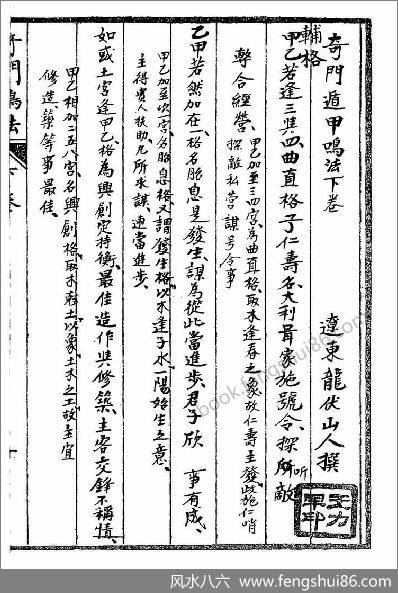 奇門遁甲鳴法下卷
遼東龍伏山人撰
輔格
甲乙若逢三與四曲直格子仁壽名大利首家施號令探聽敵
營合經營
甲乙加至三四宮為曲直格取木逢春之象故仁壽主發施仁哨
探敵私營謀号令事
乙甲若然加在一格名胎息是發生謀為從此當進步君子欣 事有成
甲乙加至坎一宮名胎息格又謂發生格以木逢子水一陽始生之意
主得貴人扶助凡所求謀速當進步
如或土宮逢甲乙格為興創定持衡最佳造作與修築主客交鋒不稱情
甲乙相加二五八宮名興創格取木尅土以象土木之工故主宜
修造築等事最佳
奇門鳴法
book.fengshui86.com
风水八六 - www.fengshui86.com